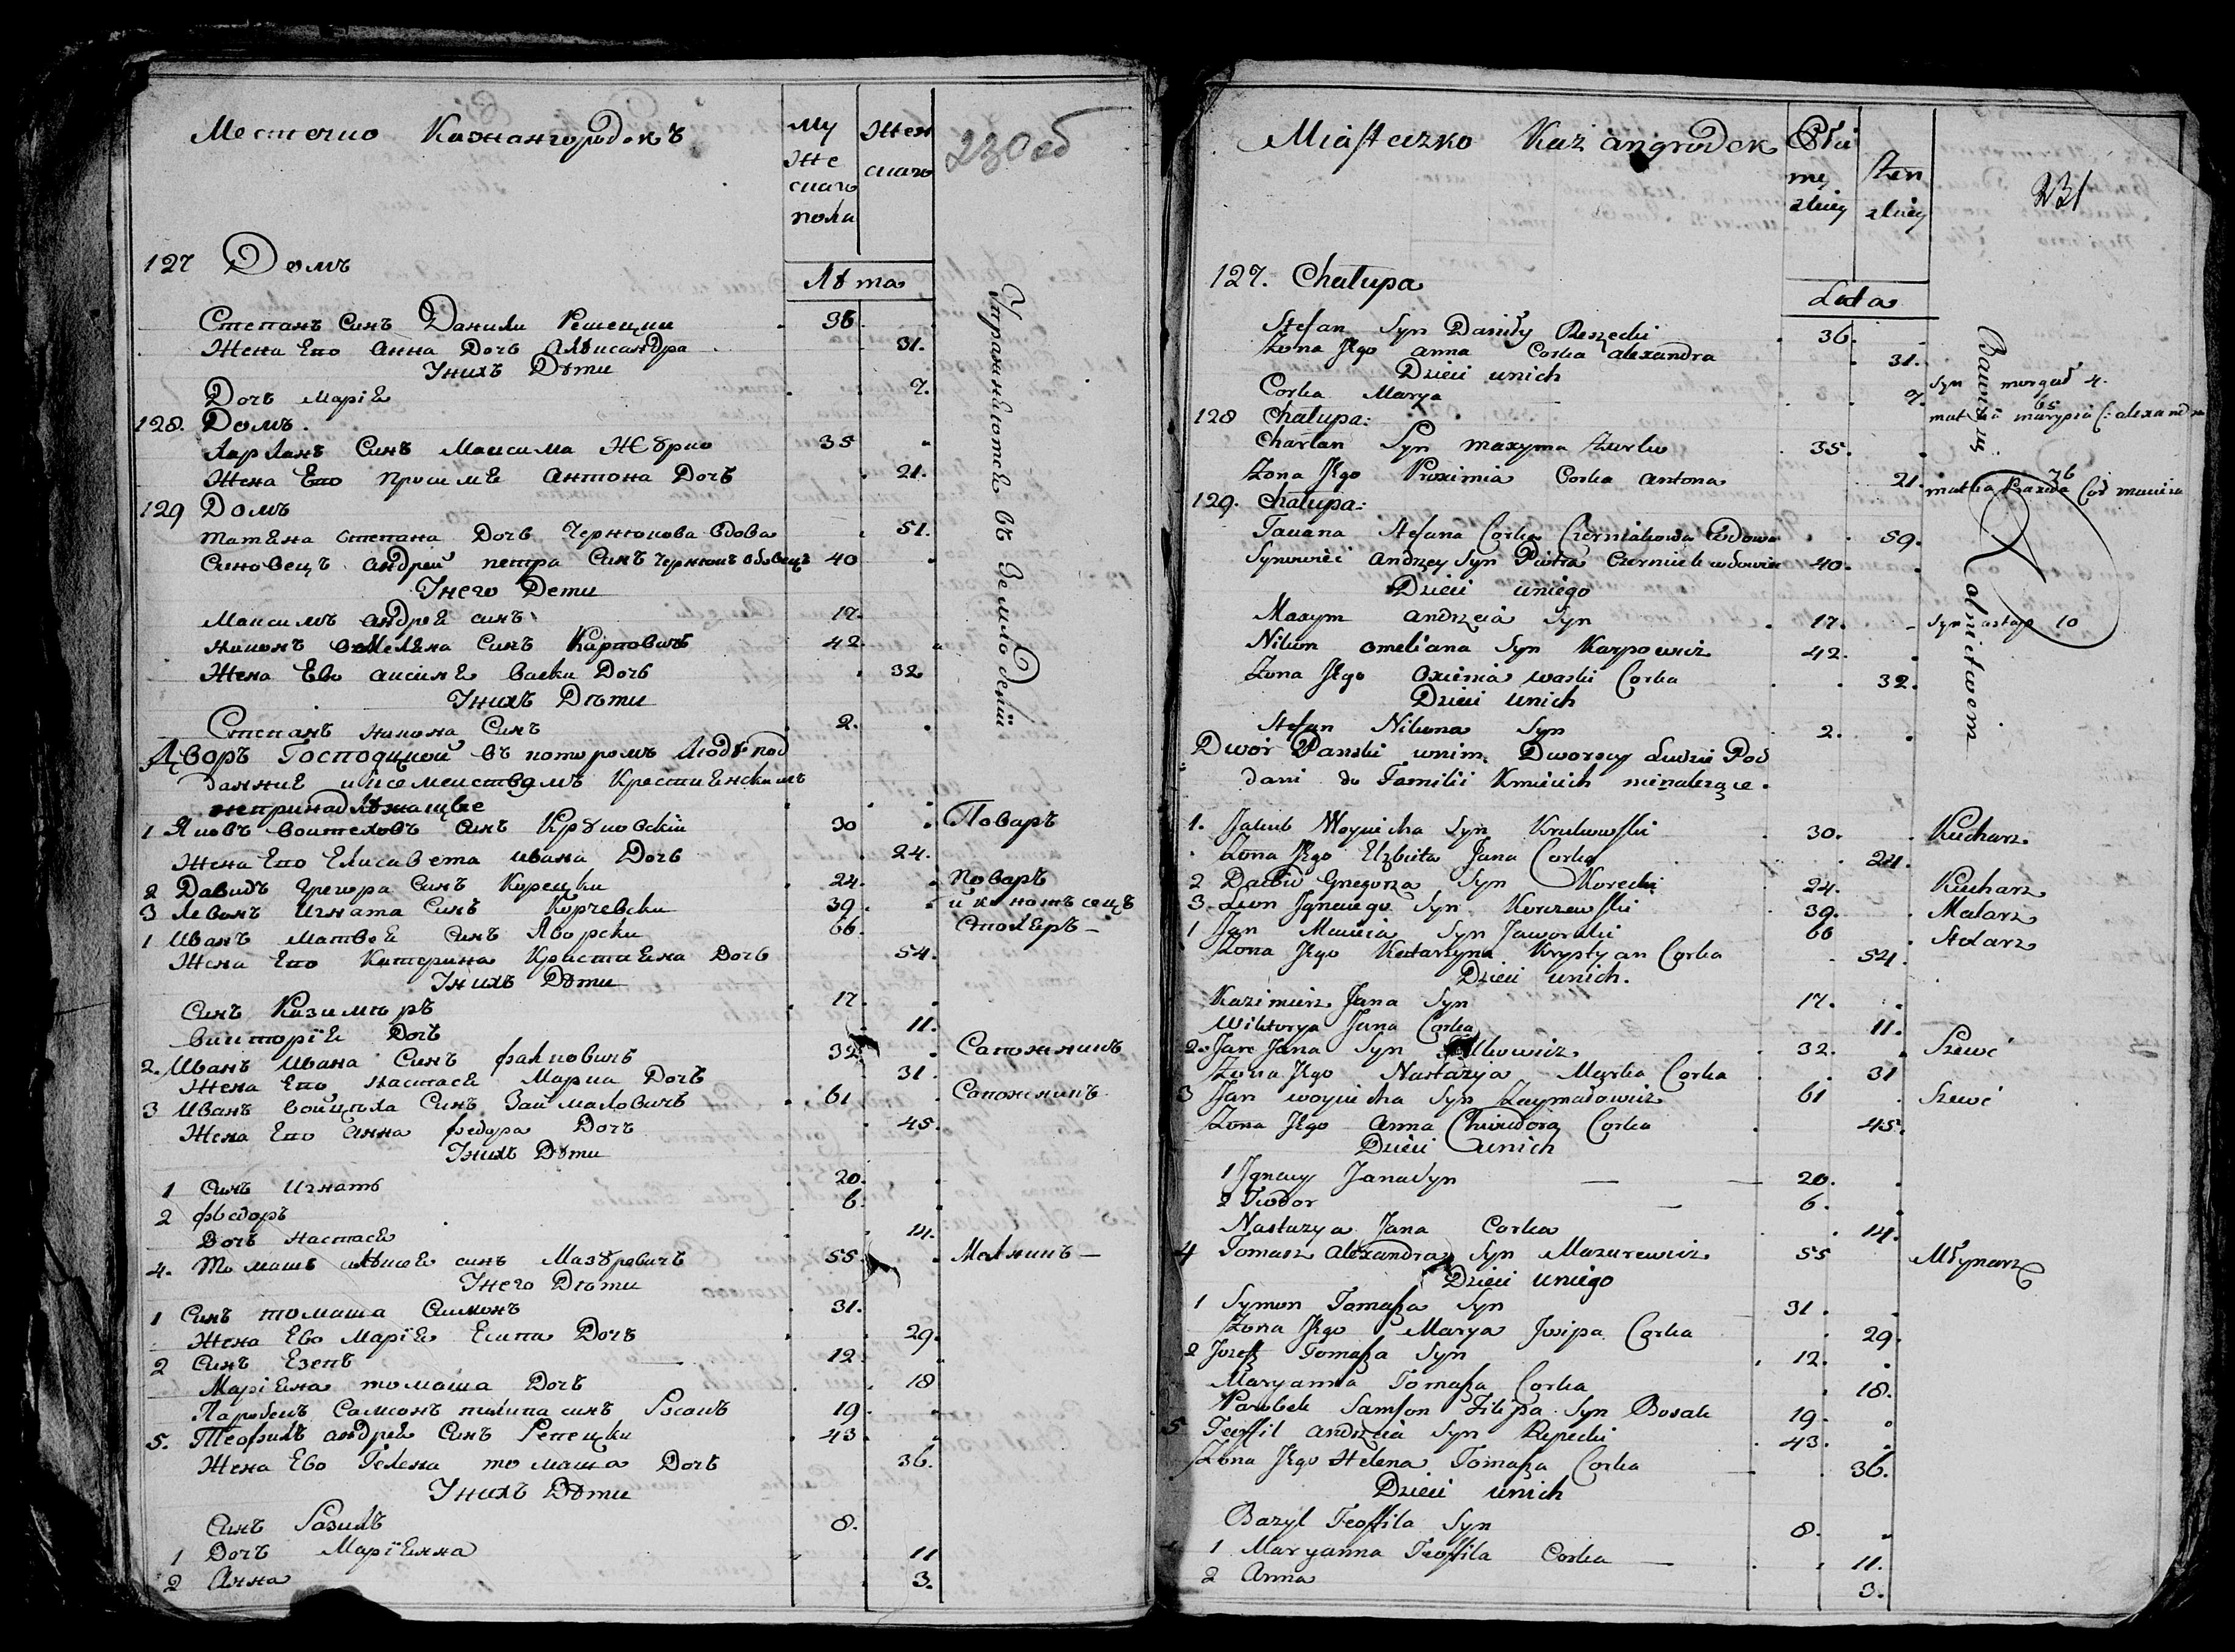 Местечко Кажангородокъ
Му
же
скаго
пола
Жен
скаго
230 об
127 Домъ
Лѣта
Степанъ Синъ Данили Решецки 36
Жена Его Анна Дочь Александра 31.
Унихъ Дѣти
Дочь Марія 7.
128. Домъ.
Харланъ Синъ Максима Жꙋрко 35
Жена Его Антона Дочь 21.
129 Домъ
Татяна Степана Дочь Чернюкова вдова 51.
Синовецъ Андрей петра Синъ вдовецъ 40
Унего Дети
Максимъ Андрея синъ 17.
никонъ омеляна Синъ Карповичъ 42.
Жена Ево аксиня васки Дочь 32
Унихъ Дѣти
Степанъ никона Синъ 2.
Упражняются въ земледелїи
Дворъ Господцкой въ которомъ Люди под
данние и Крестиенскимъ
непринадлѣжащие
1 Яковъ воитеховъ синъ Крꙋковскїи 30 Поваръ
Жена Его Елисавета ивана Дочь 24.
2 Давидъ Грегора Синъ Корецки 24. поваръ
3 Левонъ Игната Синъ Корчевски 39.
1 Иванъ Матвея Синъ Яворски 66. Столяръ
Жена Его Катерина Кристияна Дочь 54.
Унихъ Дѣти
Синъ Казимѣръ 17.
викторїя Дочъ 11.
2. Иванъ Ивана Синъ фалковичъ 32. Сапожникъ
Жена Его настася Марка Дочъ 31.
3 Иванъ войцѣха Синъ Заималовичъ 61 Сапожникъ
Жена Его Анна федора Дочъ 45.
Унихъ Дѣти
1 Синъ Игнатъ 20.
2 федоръ 6.
Дочь настася 14.
4. Томашъ синъ Мазꙋровичъ 55. Мелникъ
Унего Дѣти
1 Синъ томаша Симонъ 31.
Жена Ево Марїя Есипа Дочъ 29.
2 Синъ Езепъ 12.
Марїяна томаша Дочъ 18
Паробокъ Самсонъ филипа синъ 19.
5. Теофилъ андрея Синъ Репецки 43.
Жена Ево Гелена томаша Дочъ 36.
Унихъ Дѣти
Синъ 8.
1 Дочь Марїянна 11
2 Анна 3.
Miasteczko Każangrodek
Płci
męz
zkiey
żen
zkiey
231
127. Chałupa
Lata
Stefan Syn Daniły Reszecki 36.
Zona Jego anna Corka alexandra 31.
Dzieci unich
Corka Marya 7. Syn 4.
128 Chałupa: 65
Charłan Syn maxyma Zurko 35.
Zona Jego Corka antona 21. 76
129. Chałupa:
Taciana Stefana Corka Czerniakowa Wdowa 59.
Synowiec andrzey Syn Piotra Czerniuk wdowiec 40.
Dzieci uniego
Maxym andrzeia Syn 17. Syn astap 10
Nikon omeliana Syn Karpowicz 42.
Zona Jego Oxienia waski Corka 32.
Dzieci unich
Stefan Nikona Syn 2.
Bawią się
Rolnictwem
Dwor Panski wnim Dworscy Ludzie Pod
dani do Familii Kmiecich nienalezące.
1. Jakub Woyciecha Syn Krukowski 30. Kucharz.
Zona Jego Elzbieta Jana Corka 24.
2 Dawid Gregorza Syn Korecki 24. Kucharz
3 Leon Jgnacego Syn Korczewski 39. Malarz
1 Jan Macieia Syn Jaworski 66 Stolarz
Zona Jego Katarzyna Krystyan Corka 54.
Dzieci unich.
Kazimierz Jana Syn 17.
Wiktorya Jana Corka 11.
2. Jan Jana Syn 32. Szewc
Zona Jego Nastazya Marka Corka 31
3 Jan woyciecha Syn Zaymałowicz 61 Szewc
Zona Jego Anna Chwiedora Corka 45.
Dzieci unich
1 Jgnacy Jana Syn 20.
2 Teodor 6.
Nastazya Jana Corka 14.
4 Tomasz alexandra Syn Mazurewicz 55 Młynarz
Dzieci uniego
1 Symon Tomasza Syn 31.
Zona Jego Marya Josipa Corka 29.
2 Jozef Tomasza Syn 12.
Maryanna Tomasza Corka 18.
Parobek Samson Filipa Syn Bosak 19.
5 Teoffil andrzeia Syn Repecki 43.
Zona Jego Helena Tomasza Corka 36.
Dzieci unich
Bazyl Teoffila Syn 8.
1 Maryanna Teoffila Corka 11.
2 Anna 3.